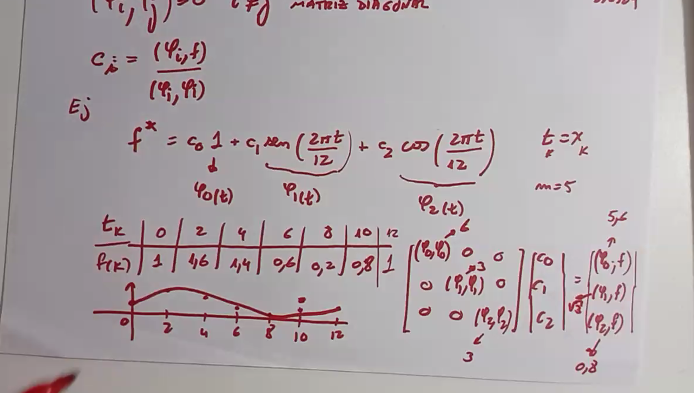 (φi, φj) = 0 i ≠ j MATRIZ DIAGONAL
Cj = (φi, f) / (φi, φi)
Ej
f* = c0 1 + c1 sen(2πt/12) + c2 cos(2πt/12) tk = xk
φ0(t) φ1(t) φ2(t) m=5
tk | 0 | 2 | 4 | 6 | 8 | 10 | 12
f(k) | 1 | 1,6 | 1,4 | 0,6 | 0,2 | 0,8 | 1
0 2 4 6 8 10 12
6 5,6
[(φ0,φ0) 0 0] [c0] = [(φ0,f)]
3
[0 (φ1,φ1) 0] [c1] √3 [(φ1,f)]
[0 0 (φ2,φ2)] [c2] [(φ2,f)]
3 0,8